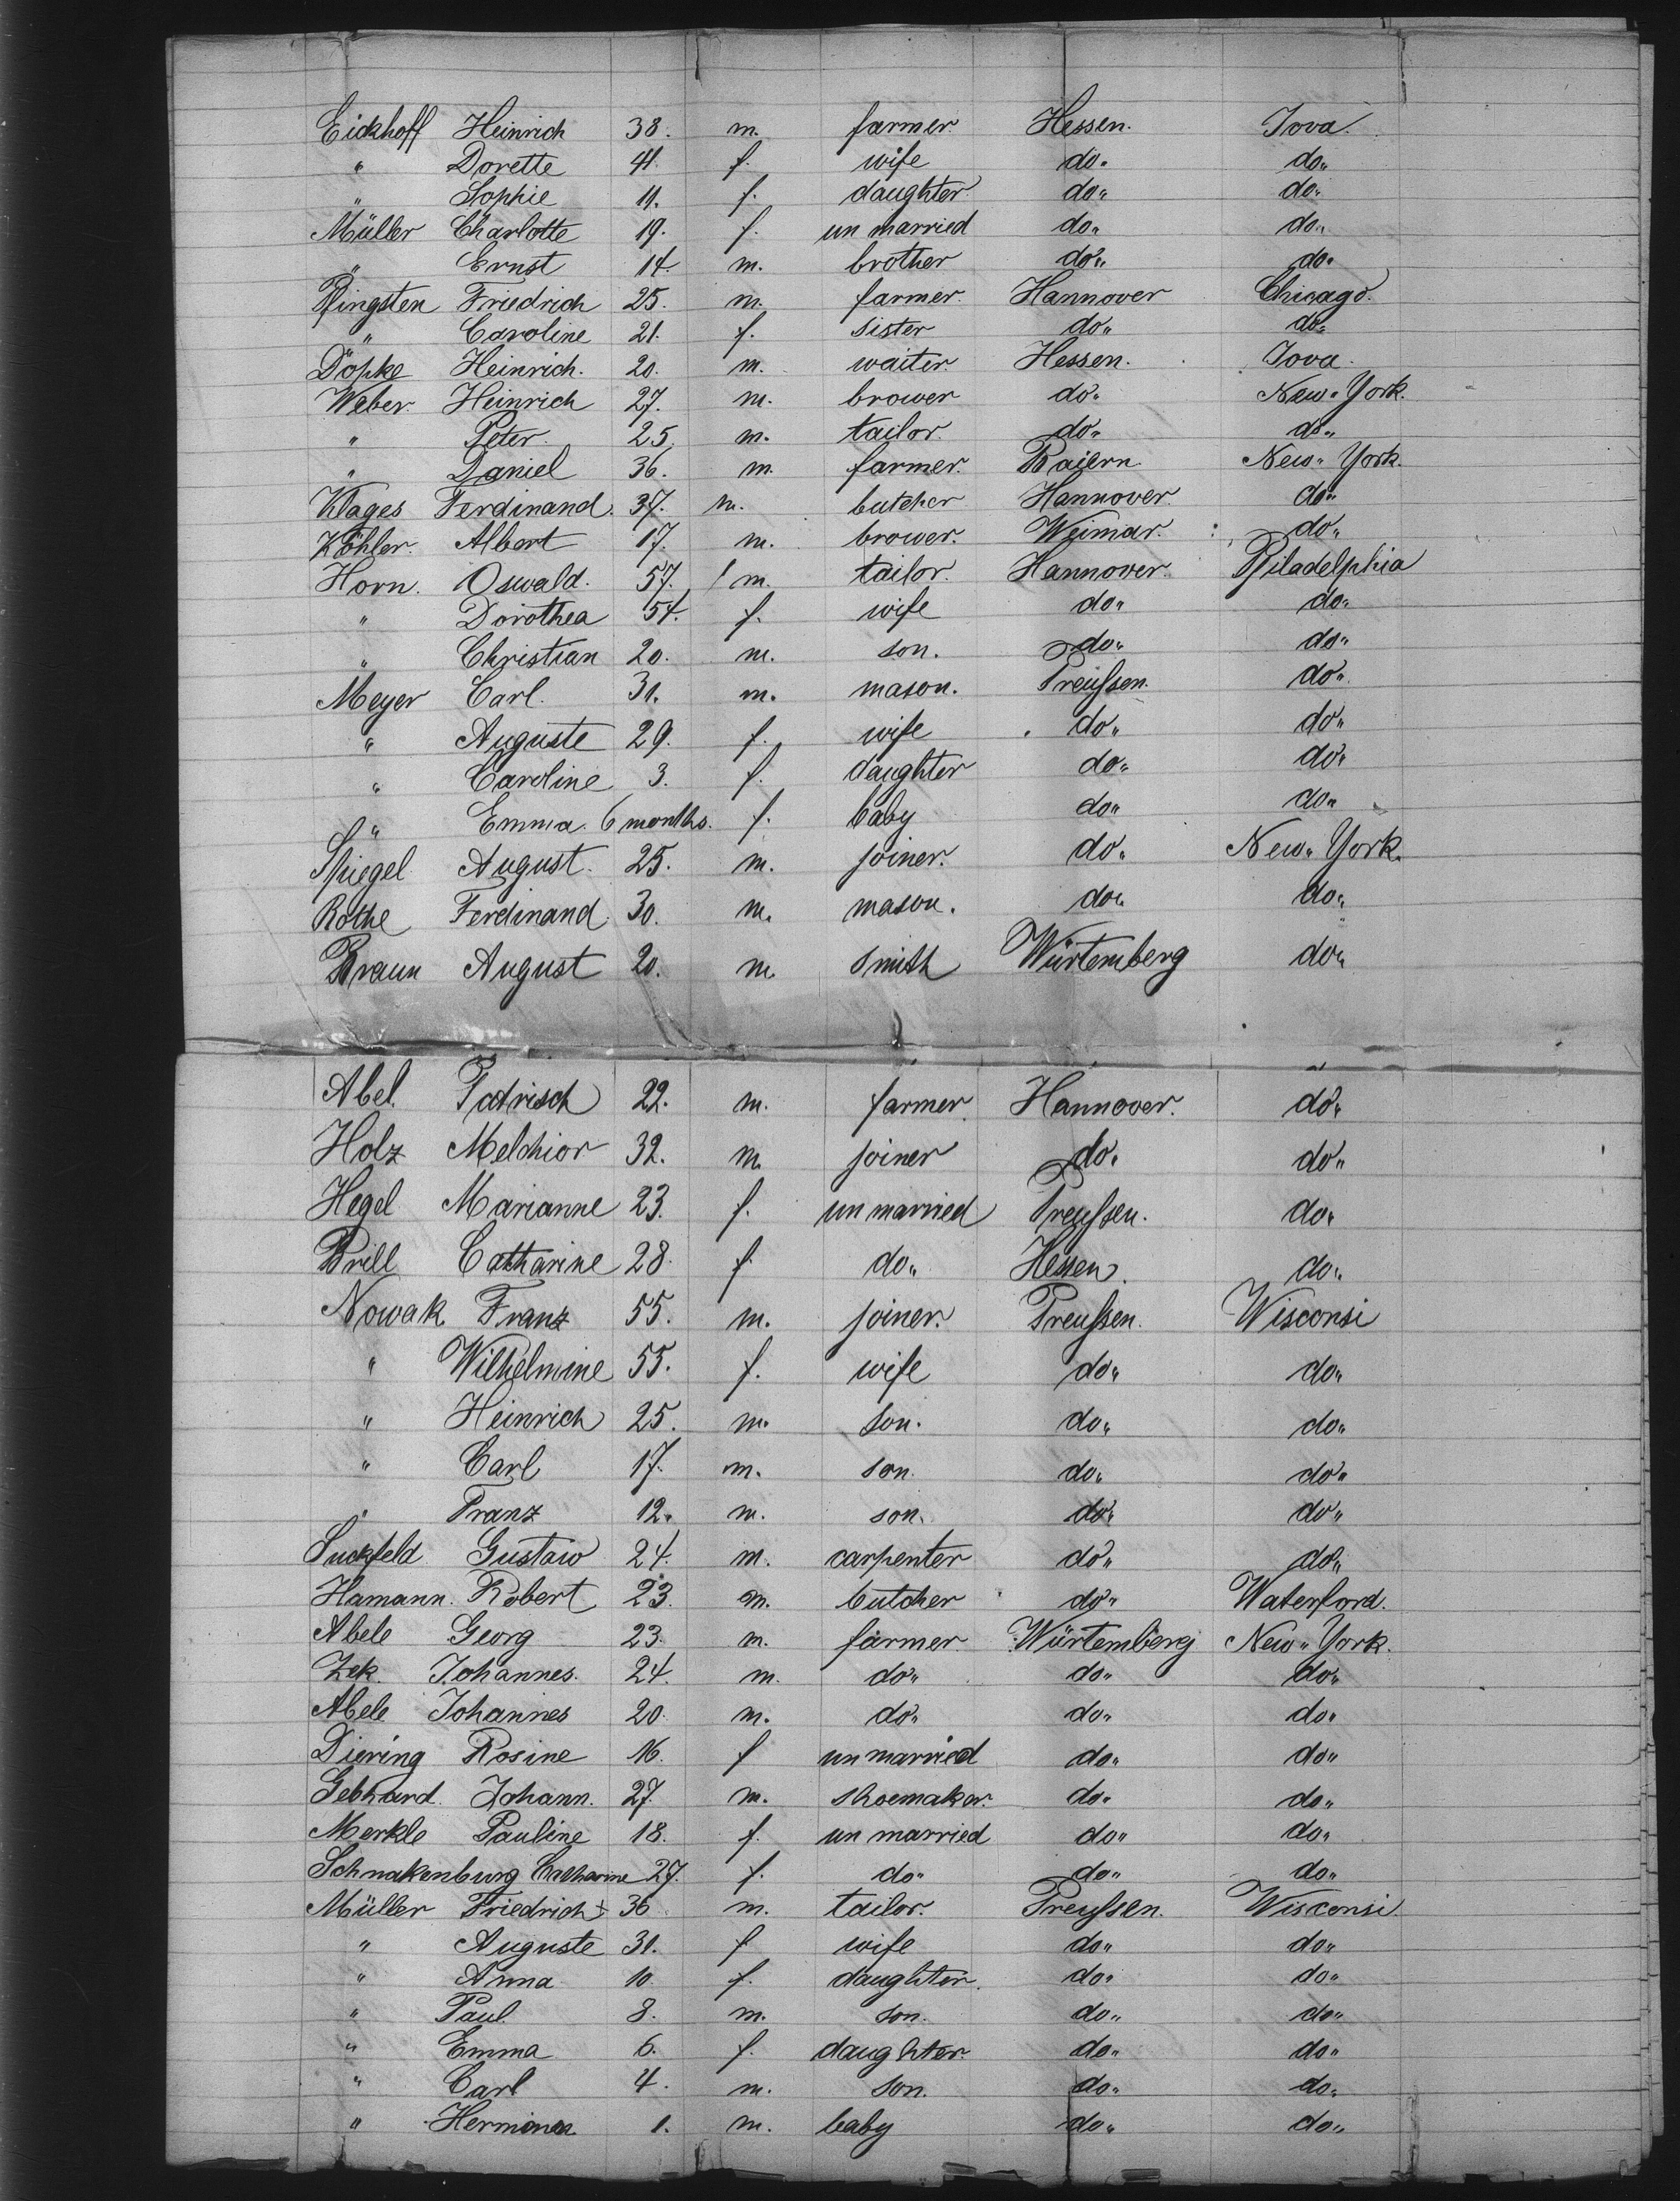 Eickhoff Heinrich 38. m. farmer. Hessen. Iova.
" Dorette 41. f. wife do" do"
" Sophie 11. f. daughter. do" do"
Müller Charlotte 19. f. un married do" do"
" Ernst 14. m. brother do" do"
Pfingsten Friedrich 25. m. farmer. Hannover Chicago.
" Caroline 21. f. sister do" do"
Döpke Heinrich. 20. m. waiter. Hessen. Iova.
Weber. Heinrich 27. m. brower do" New" York.
" Peter. 25. m. tailor. do" do"
" Daniel 36. m. farmer. Baiern. New" York.
Klages Ferdinand. 37. m. butcher Hannover. do"
Köhler. Albert 17. m. brower. Weimar. do"
Horn. Oswald. 57. m. tailor. Hannover. Philadelphia
" Dorothea 54. f. wife do" do"
" Christian 20. m. son. do" do"
Meyer Carl. 31. m. mason. Preußen. do"
" Auguste 29. f. wife do" do"
" Caroline 3. f. daughter do" do"
" Emma. 6 months. f. baby do" do"
Spiegel August. 25. m. joiner. do" New" York.
Rothe Ferdinand 30. m. mason. do" do"
Braun August 20. m. smith Würtemberg do"
Abel. 22. m. farmer. Hannover. do"
Holz Melchior 32. m. joiner do" do"
Hegel Marianne 23. f. un married Preußen. do"
Brill Catharine 28. f. do" Hessen. do"
Nowak Franz 55. m. joiner. Preußen. Wisconsi
" Wilhelmine 55. f. wife do" do"
" Heinrich 25. m. son. do" do"
" Carl 17. m. son. do" do"
" Franz 12. m. son. do" do"
Suckfeld Gustaw 24. m. carpenter do" do"
Hamann. Robert 23. m. butcher do" Waterford.
Abele Georg 23. m. farmer Würtemberg New" York.
Zek. Johannes. 24. m. do" do" do"
Abele Johannes 20. m. do" do" do"
Diering Rosine 16. f un married do" do"
Gebhard. Johann. 27. m. shoemaker. do" do"
Merkle Pauline 18. f. un married do" do"
Schnakenburg Catharine 27. f. do" do" do"
Müller Friedrich 36 m. tailor. Preußen. Wisconsi.
" Auguste 31. f wife do" do"
" Anna 10. f. daughter. do" do"
" Paul. 8. m. son. do" do"
" Emma 6. f. daughter. do" do"
" Carl 4. m. son. do" do"
" Hermina 1. m. baby do" do"